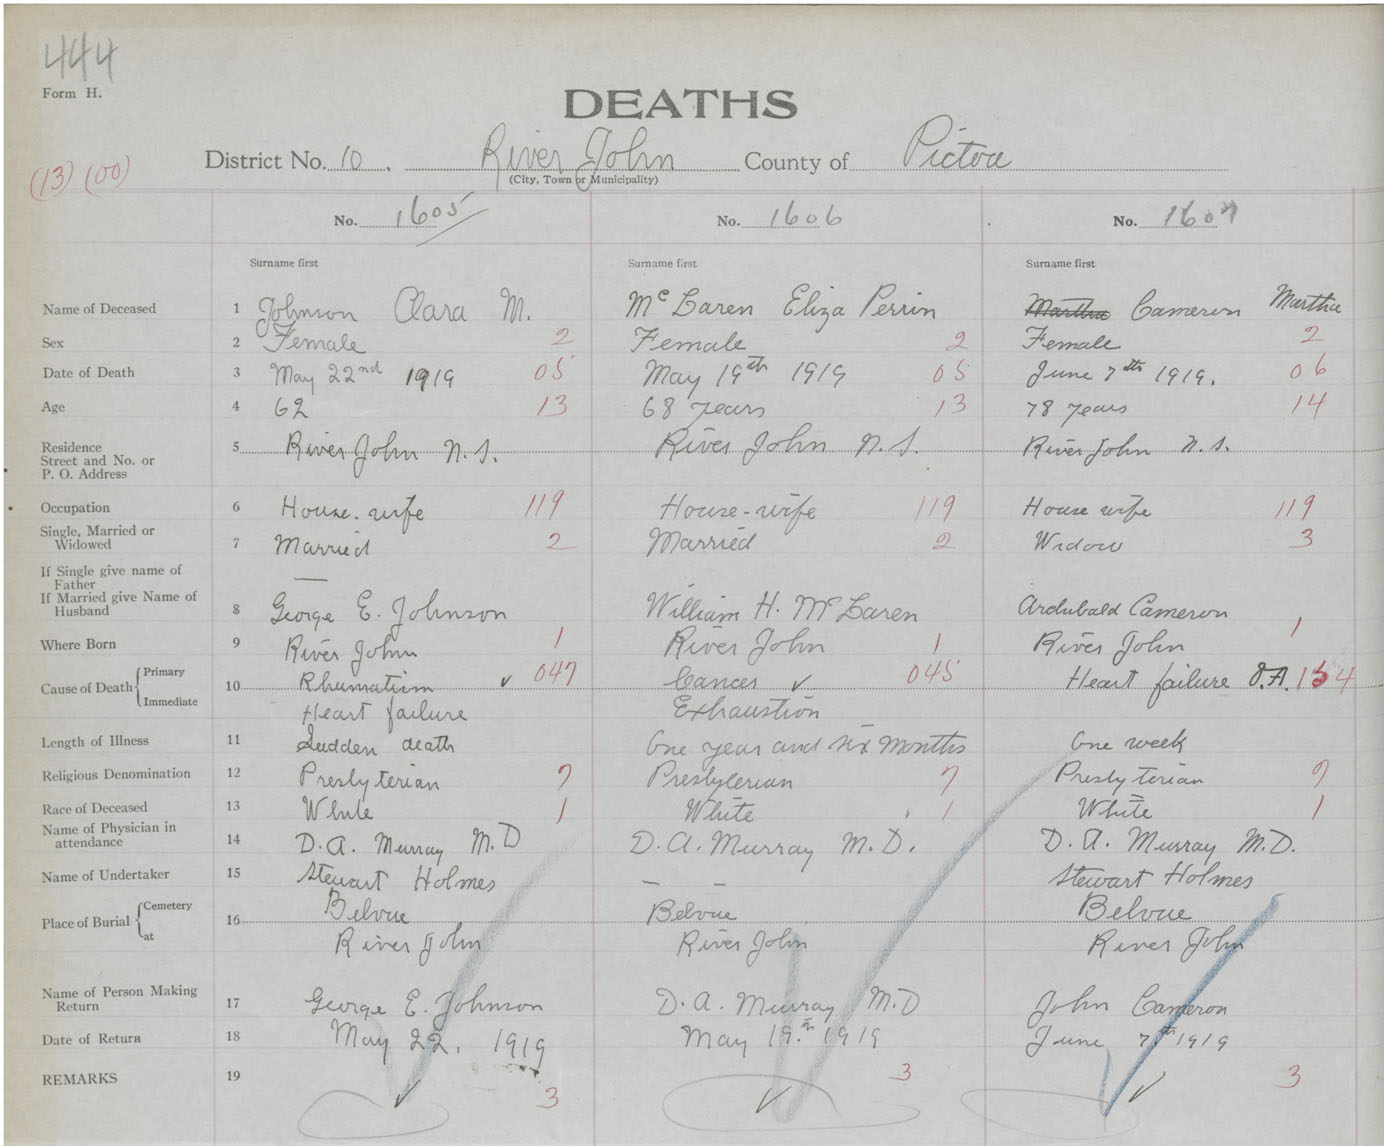 444
Form H.
DEATHS
District No. 10, River John County of Pictou
(City, Town or Municipality)
(13) (00)
No. 1605 No. 1606 No. 1607
Surname first Surname first Surname first
Name of Deceased 1 Johnson Clara M. McLaren Eliza Perrin Martha Cameron Martha
Sex 2 Female 2 Female 2 Female 2
Date of Death 3 May 22nd 1919 05 May 19th 1919 05 June 7th 1919. 06
Age 4 62 13 68 years 13 78 years 14
Residence
Street and No. or 5 River John N.S. River John N.S. River John N.S.
P. O. Address
Occupation 6 House-wife 119 House-wife 119 House wife 119
Single, Married or
Widowed 7 Married 2 Married 2 Widow 3
If Single give name of
Father
If Married give Name of
Husband 8 George E. Johnson William H. McLaren Archibald Cameron
Where Born 9 River John 1 River John 1 River John 1
Cause of Death Primary 10 Rhumatism ✓ 047 Cancer ✓ 045 Heart failure O.A. 154
Immediate Heart failure Exhaustion
Length of Illness 11 Sudden death One year and six months One week
Religious Denomination 12 Presbyterian 7 Presbyterian 7 Presbyterian 7
Race of Deceased 13 White 1 White 1 White 1
Name of Physician in
attendance 14 D.A. Murray M.D D.A. Murray M.D. D.A. Murray M.D.
Name of Undertaker 15 Stewart Holmes — Stewart Holmes
Place of Burial Cemetery 16 Belvue Belvue Belvue
at River John River John River John
Name of Person Making
Return 17 George E. Johnson D.A. Murray M.D John Cameron
Date of Return 18 May 22, 1919 May 19th 1919 June 7th 1919
REMARKS 19 3 3 3